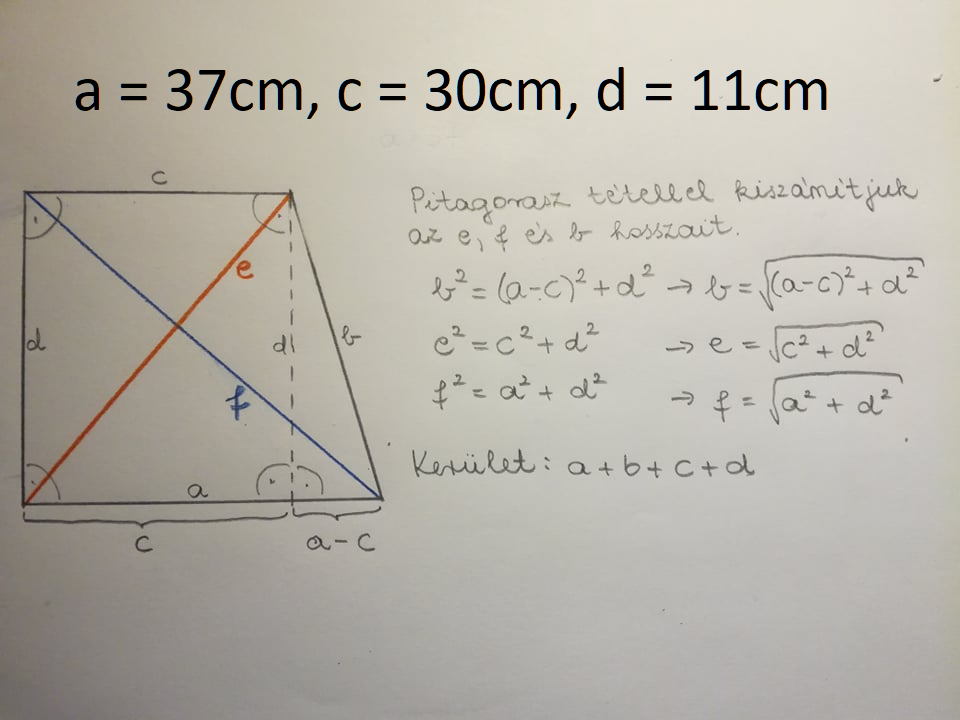 a = 37cm, c = 30cm, d = 11cm
c
Pitagorasz tétellel kiszámítjuk
az e, f és b hosszait.
e
b² = (a-c)² + d² → b = √(a-c)² + d²
d
d
b
e² = c² + d² → e = √c² + d²
f
f² = a² + d² → f = √a² + d²
Kerület: a + b + c + d
a
c
a - c